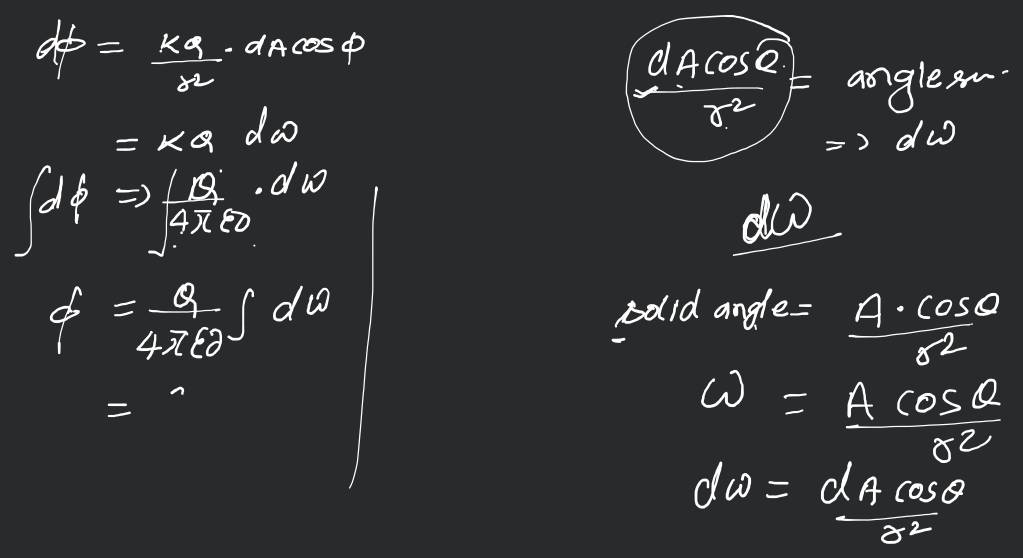 dϕ = KQ/r² · dA cosϕ
= KQ dω
∫dϕ => ∫Q/4πε0 · dω
ϕ = Q/4πε0 ∫ dω
=
dA cosθ/r² = angle
=> dω
dω
solid angle = A · cosθ/r²
ω = A cosθ/r²
dω = dA cosθ/r²